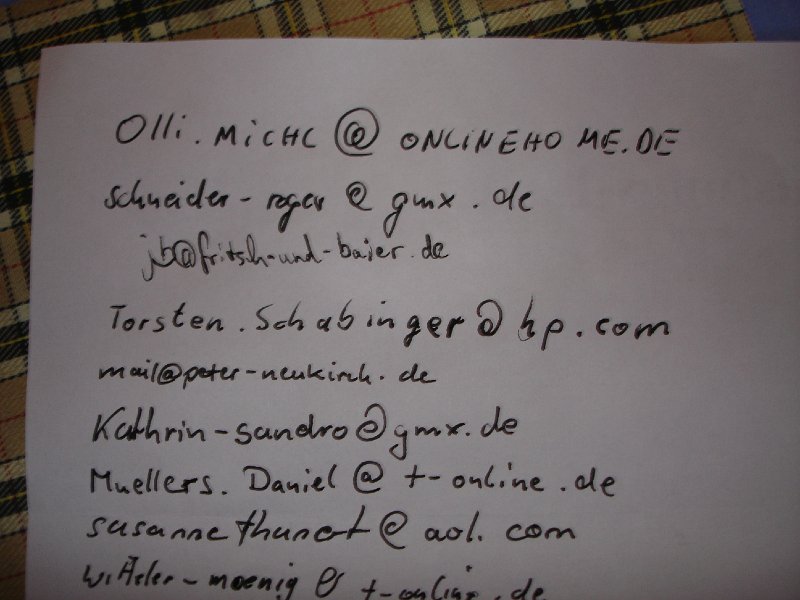 Olli.MICHL@ONLINEHOME.DE
schneider-roger@gmx.de
jb@fritsch-und-baier.de
Torsten.Schabinger@hp.com
mail@peter-neukirch.de
Kathrin-sandro@gmx.de
Muellers.Daniel@t-online.de
susannethunot@aol.com
@t-online.de